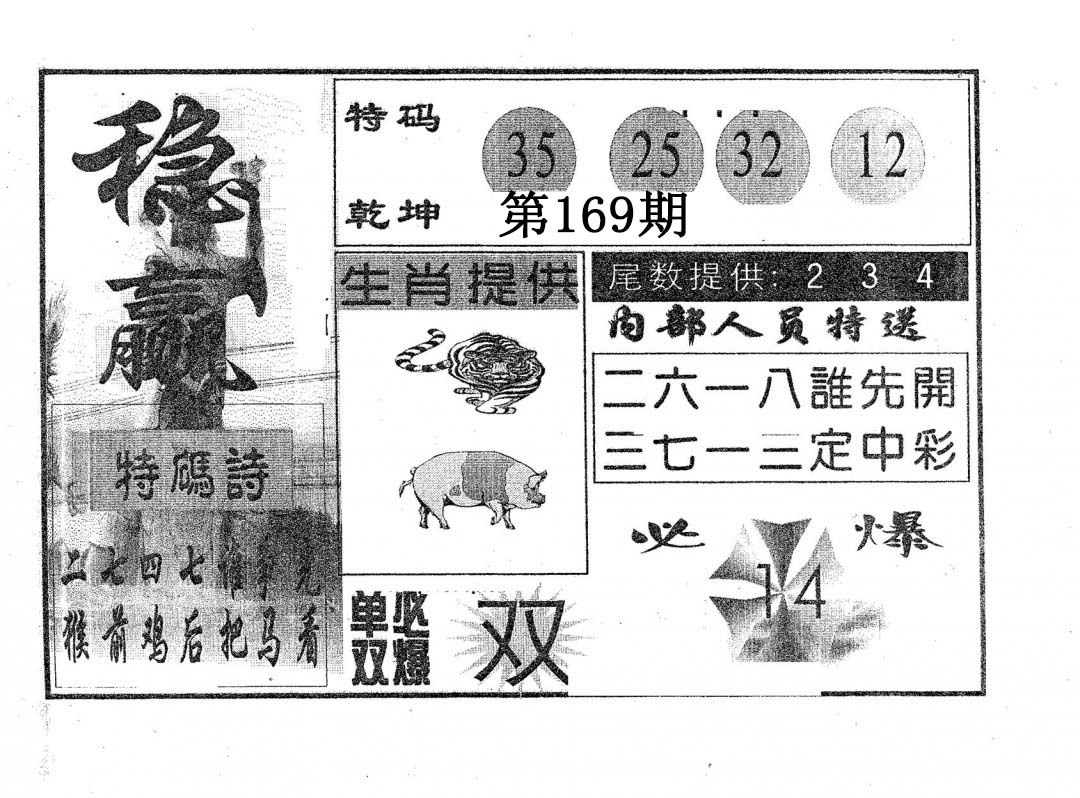 稳赢
特码
乾坤
35 25 32 12
第169期
生肖提供
尾数提供: 2 3 4
内部人员特送
二六一八誰先開
三七一三定中彩
必爆
14
特碼詩
二七四七谁争先
猴前鸡后把马看
单双必爆
双